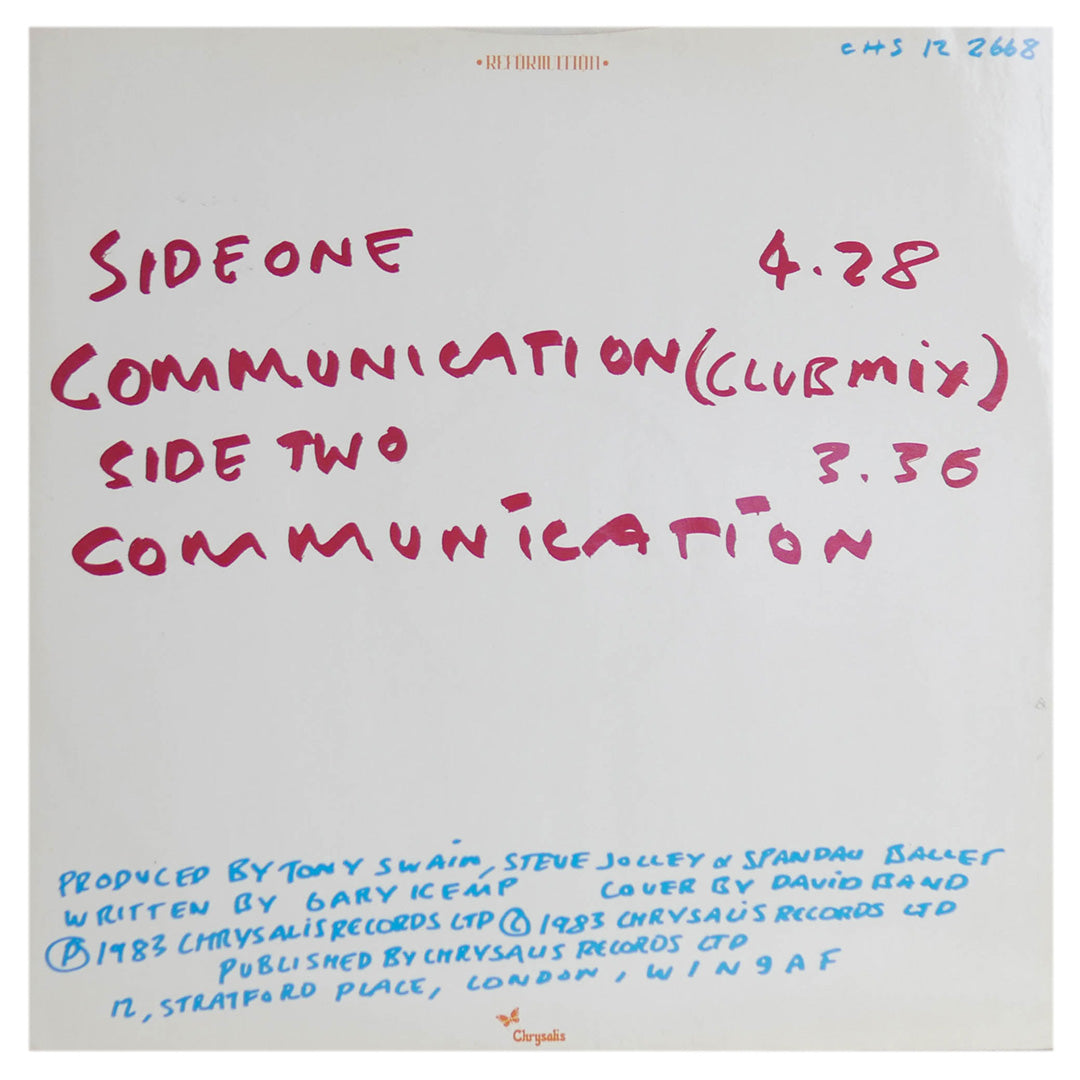 •REFORMATION•
CHS 12 2668
SIDE ONE 4.28
COMMUNICATION (CLUB MIX)
SIDE TWO 3.36
COMMUNICATION
PRODUCED BY TONY SWAIN, STEVE JOLLEY & SPANDAU BALLET
WRITTEN BY GARY KEMP COVER BY DAVID BAND
Ⓟ 1983 CHRYSALIS RECORDS LTD © 1983 CHRYSALIS RECORDS LTD
PUBLISHED BY CHRYSALIS RECORDS LTD
12, STRATFORD PLACE, LONDON, W1N 9AF
Chrysalis